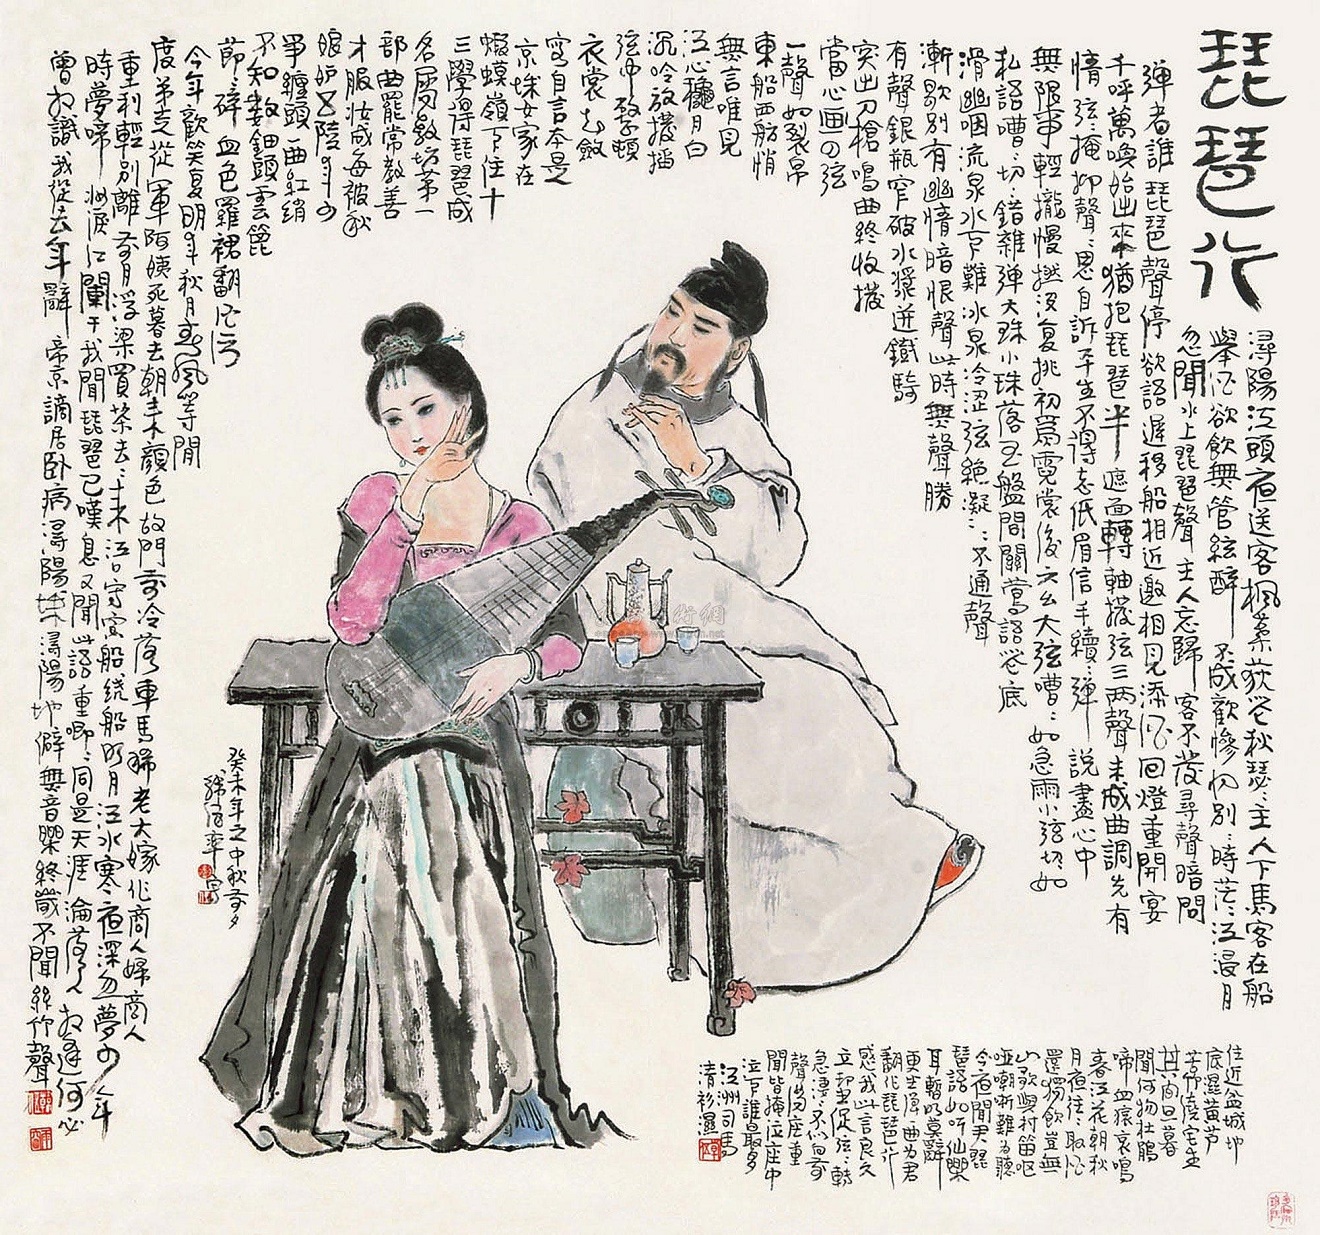 琵琶行
潯陽江頭夜送客楓葉荻花秋瑟:主人下馬客在船
舉酒欲飲無管絃醉不成歡慘將別:時茫:江浸月
忽聞水上琵琶聲主人忘歸客不發尋聲暗問
彈者誰琵琶聲停欲語遲移船相近邀相見添酒回燈重開宴
千呼萬喚始出來猶抱琵琶半遮面轉軸撥弦三兩聲未成曲調先有
情弦:掩抑聲:思自訴平生不得志低眉信手續:彈說盡心中
無限事輕攏慢撚抹復挑初為霓裳後六么大弦嘈:如急雨小弦切:如
私語嘈:切:錯雜彈大珠小珠落玉盤間關鶯語花底
滑幽咽流泉水下難冰泉冷澀弦絕凝::不通聲
漸歇別有幽情暗恨聲此時無聲勝
有聲銀瓶乍破水漿迸鐵騎
突出刀槍鳴曲終收撥
當心畫四弦
一聲如裂帛
東船西舫悄
無言唯見
江心穐月白
沉吟放撥插
弦中整頓
衣裳起斂
容自言本是
京城女家在
蝦蟆嶺下住十
三學得琵琶成
名屬教坊第一
部曲罷常教善
才服妝成每被秋
娘妒五陵年少
爭纏頭一曲紅綃
不知數鈿頭雲篦
節碎血色羅裙翻酒污
今年歡笑復明年秋月春風等閒
度弟走從軍阿姨死暮去朝來顏色故門前冷落車馬稀老大嫁作商人婦商人
重利輕別離前月浮梁買茶去:來江口守空船繞船明月江水寒夜深忽夢少年
時夢啼妝淚紅闌干我聞琵琶已嘆息又聞此語重唧:同是天涯淪落人相逢何必
曾相識我從去年辭帝京謫居臥病潯陽城潯陽地僻無音樂終歲不聞絲竹聲
住近湓城地
底濕黃芦
苦竹繞宅生
其間旦暮
聞何物杜鵑
啼血猿哀鳴
春江花朝秋
月夜往:取酒
還獨飲豈無
山歌與村笛嘔
啞嘲哳難為聽
今夜聞君琵
琶語如听仙樂
耳暫明莫辭
更坐彈一曲為君
翻作琵琶行
感我此言良久
立卻坐促弦:轉
急淒:不似向前
聲滿座重
聞皆掩泣座中
泣下誰最多
江州司馬
青衫濕
癸未年之中秋前夕